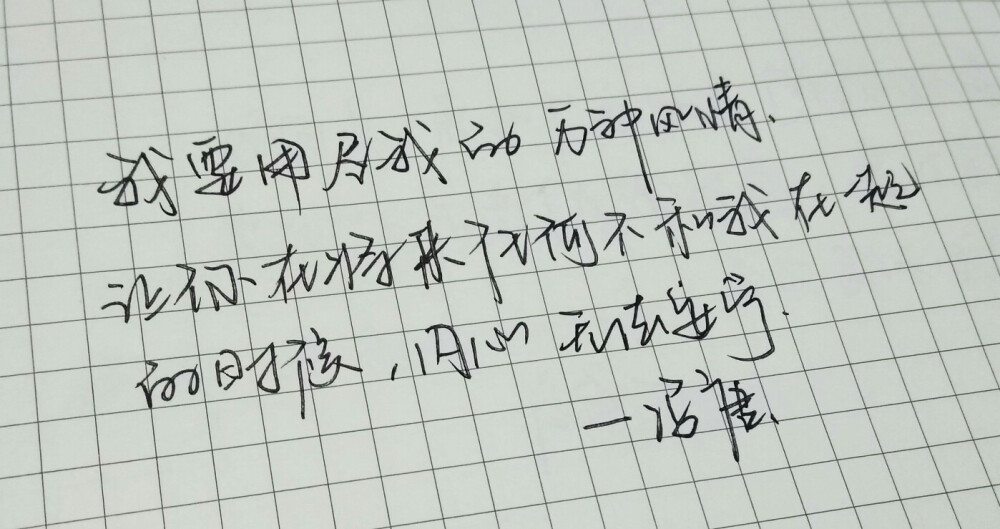 我要用尽我的万种风情,
让你在将来任何不和我在一起
的时候,内心无法安宁.
—冯唐.